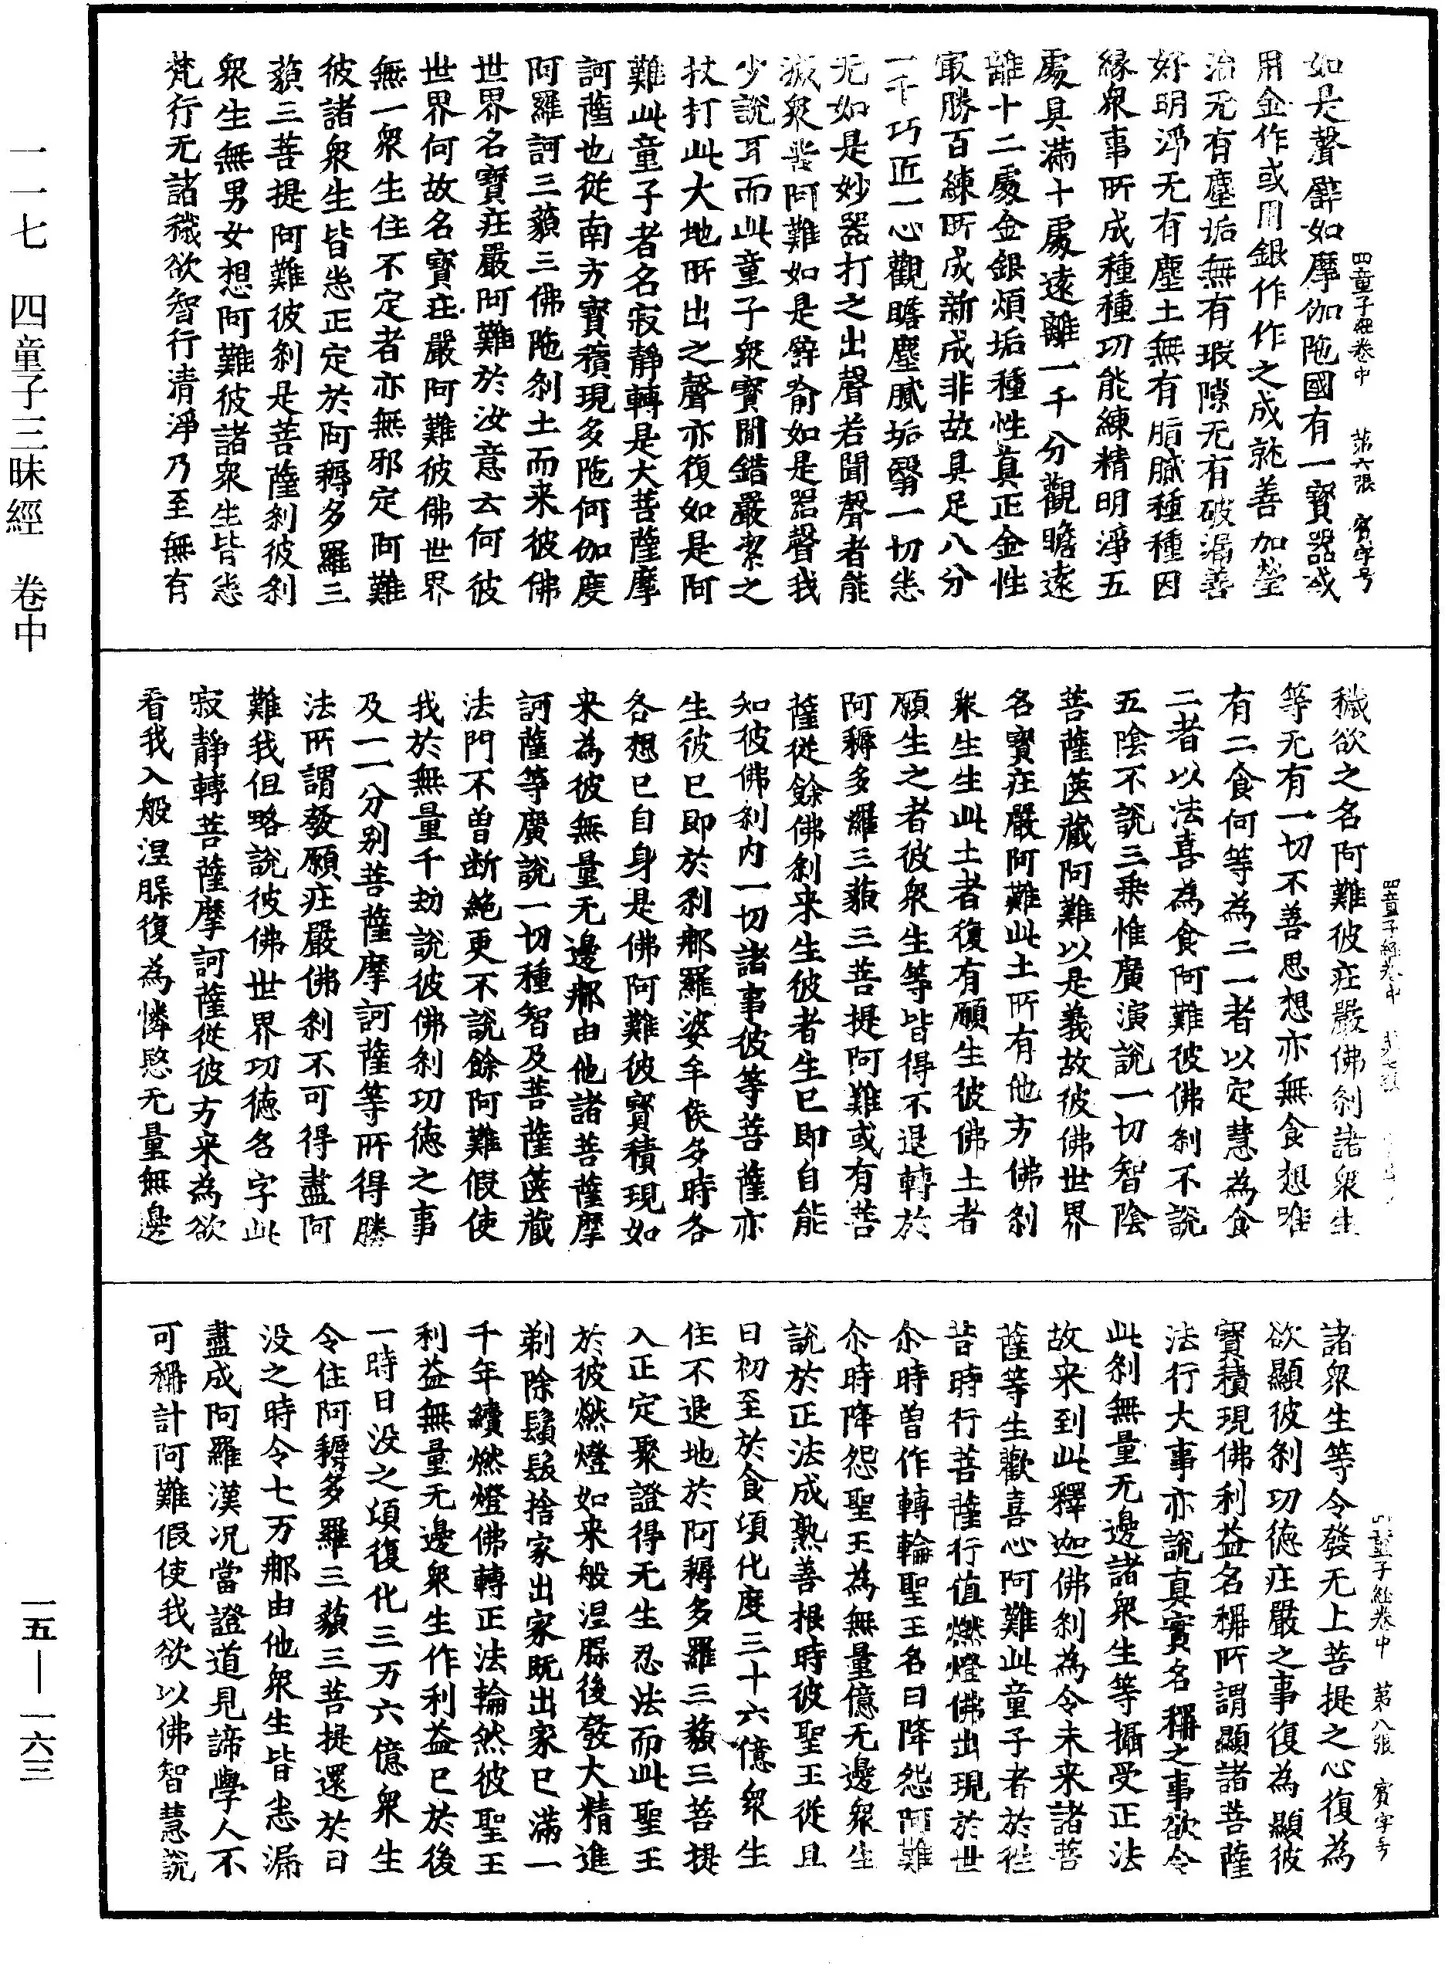 一一七 四童子三昧經 卷中
一五—一六三
四童子經卷中 第六張 賓字号
如是聲譬如摩伽陁國有一寶器或
用金作或用銀作作之成就善加瑩
治无有塵垢無有瑕隙无有破漏善
好明淨无有塵土無有脂膩種種因
緣衆事所成種種功能練精明淨五
處具滿十處遠離一千分觀瞻遠
離十二處金銀煩垢種性真正金性
㝡勝百練所成新成非故具足八分
一千巧匠一心觀瞻塵膩垢翳一切悉
无如是妙器打之出聲若聞聲者能
滅衆 阿難如是譬喻如是器聲我
少說耳而此童子衆寶閒錯嚴潔之
杖打此大地所出之聲亦復如是阿
難此童子者名寂靜轉是大菩薩摩
訶薩也從南方寶積現多陁阿伽度
阿羅訶三藐三佛陁刹土而来彼佛
世界名寶庄嚴阿難於汝意云何彼
世界何故名寶庄嚴阿難彼佛世界
無一衆生住不定者亦無邪定阿難
彼諸衆生皆悉正定於阿耨多羅三
藐三菩提阿難彼刹是菩薩刹彼刹
衆生無男女想阿難彼諸衆生皆悉
梵行无諸穢欲智行清淨乃至無有
四童子經卷中
穢欲之名阿難彼庄嚴佛刹諸衆生
等无有一切不善思想亦無食想唯
有二食何等為二一者以定慧為食
二者以法喜為食阿難彼佛刹不說
五陰不說三乗惟廣演說一切智陰
菩薩篋藏阿難以是義故彼佛世界
名寶庄嚴阿難此土所有他方佛刹
衆生生此土者復有願生彼佛土者
願生之者彼衆生等皆得不退轉於
阿耨多羅三藐三菩提阿難或有菩
薩從餘佛刹来生彼者生已即自能
知彼佛刹内一切諸事彼等菩薩亦
生彼已即於刹那羅婆牟侯多時各
各想已自身是佛阿難彼寶積現如
来為彼無量无邊那由他諸菩薩摩
訶薩等廣說一切種智及菩薩篋藏
法門不曾斷絶更不說餘阿難假使
我於無量千劫說彼佛刹功德之事
及一一分别菩薩摩訶薩等所得勝
法所謂發願庄嚴佛刹不可得盡阿
難我但略說彼佛世界功德名字此
寂靜轉菩薩摩訶薩從彼方来為欲
看我入般涅槃復為憐愍无量無邊
四童子經卷中 第八張 賓字号
諸衆生等令發无上菩提之心復為
欲顯彼刹功德庄嚴之事復為顯彼
寶積現佛利益名稱所謂顯諸菩薩
法行大事亦說真實名稱之事欲令
此刹無量无邊諸衆生等攝受正法
故来到此釋迦佛刹為令未来諸菩
薩等生歡喜心阿難此童子者於徃
昔時行菩薩行值燃燈佛出現於世
尒時曽作轉輪聖王名曰降怨阿難
尒時降怨聖王為無量億无邊衆生
說於正法成熟善根時彼聖王從旦
日初至於食頃化度三十六億衆生
住不退地於阿耨多羅三藐三菩提
入正定聚證得无生忍法而此聖王
於彼燃燈如来般涅槃後發大精進
剃除鬚髮捨家出家既出家已滿一
千年續燃燈佛轉正法輪然彼聖王
利益無量无邊衆生作利益已於後
一時日没之頃復化三万六億衆生
令住阿耨多羅三藐三菩提還於日
没之時令七万那由他衆生皆悉漏
盡成阿羅漢况當證道見諦學人不
可稱計阿難假使我欲以佛智慧說